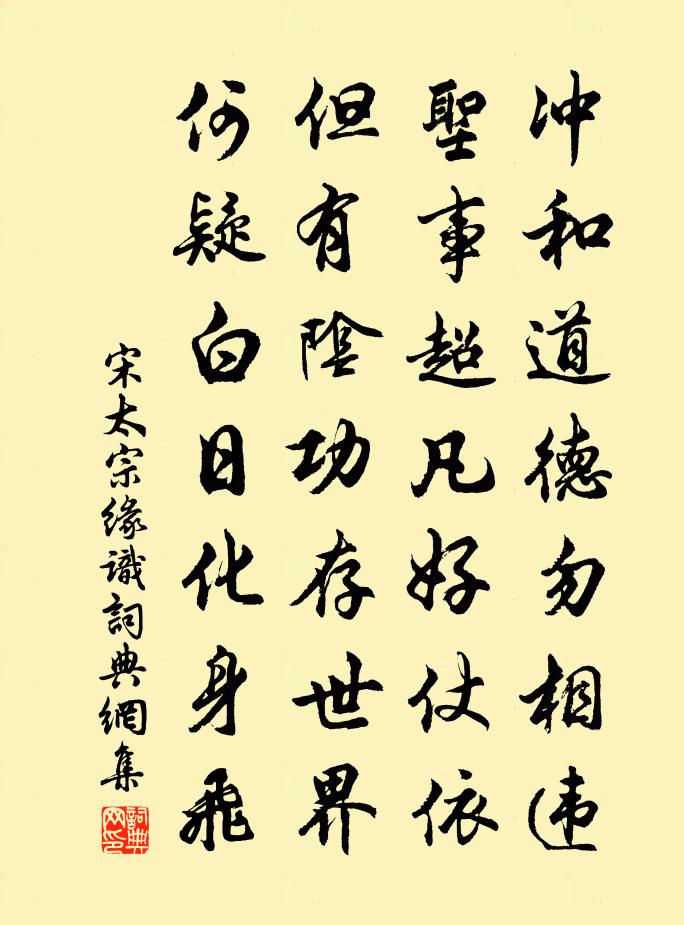 冲和道德勿相违
聖事超凡好仗依
但有陰功存世界
何疑白日化身飛
宋太宗缘識詞典網集
詞典网印